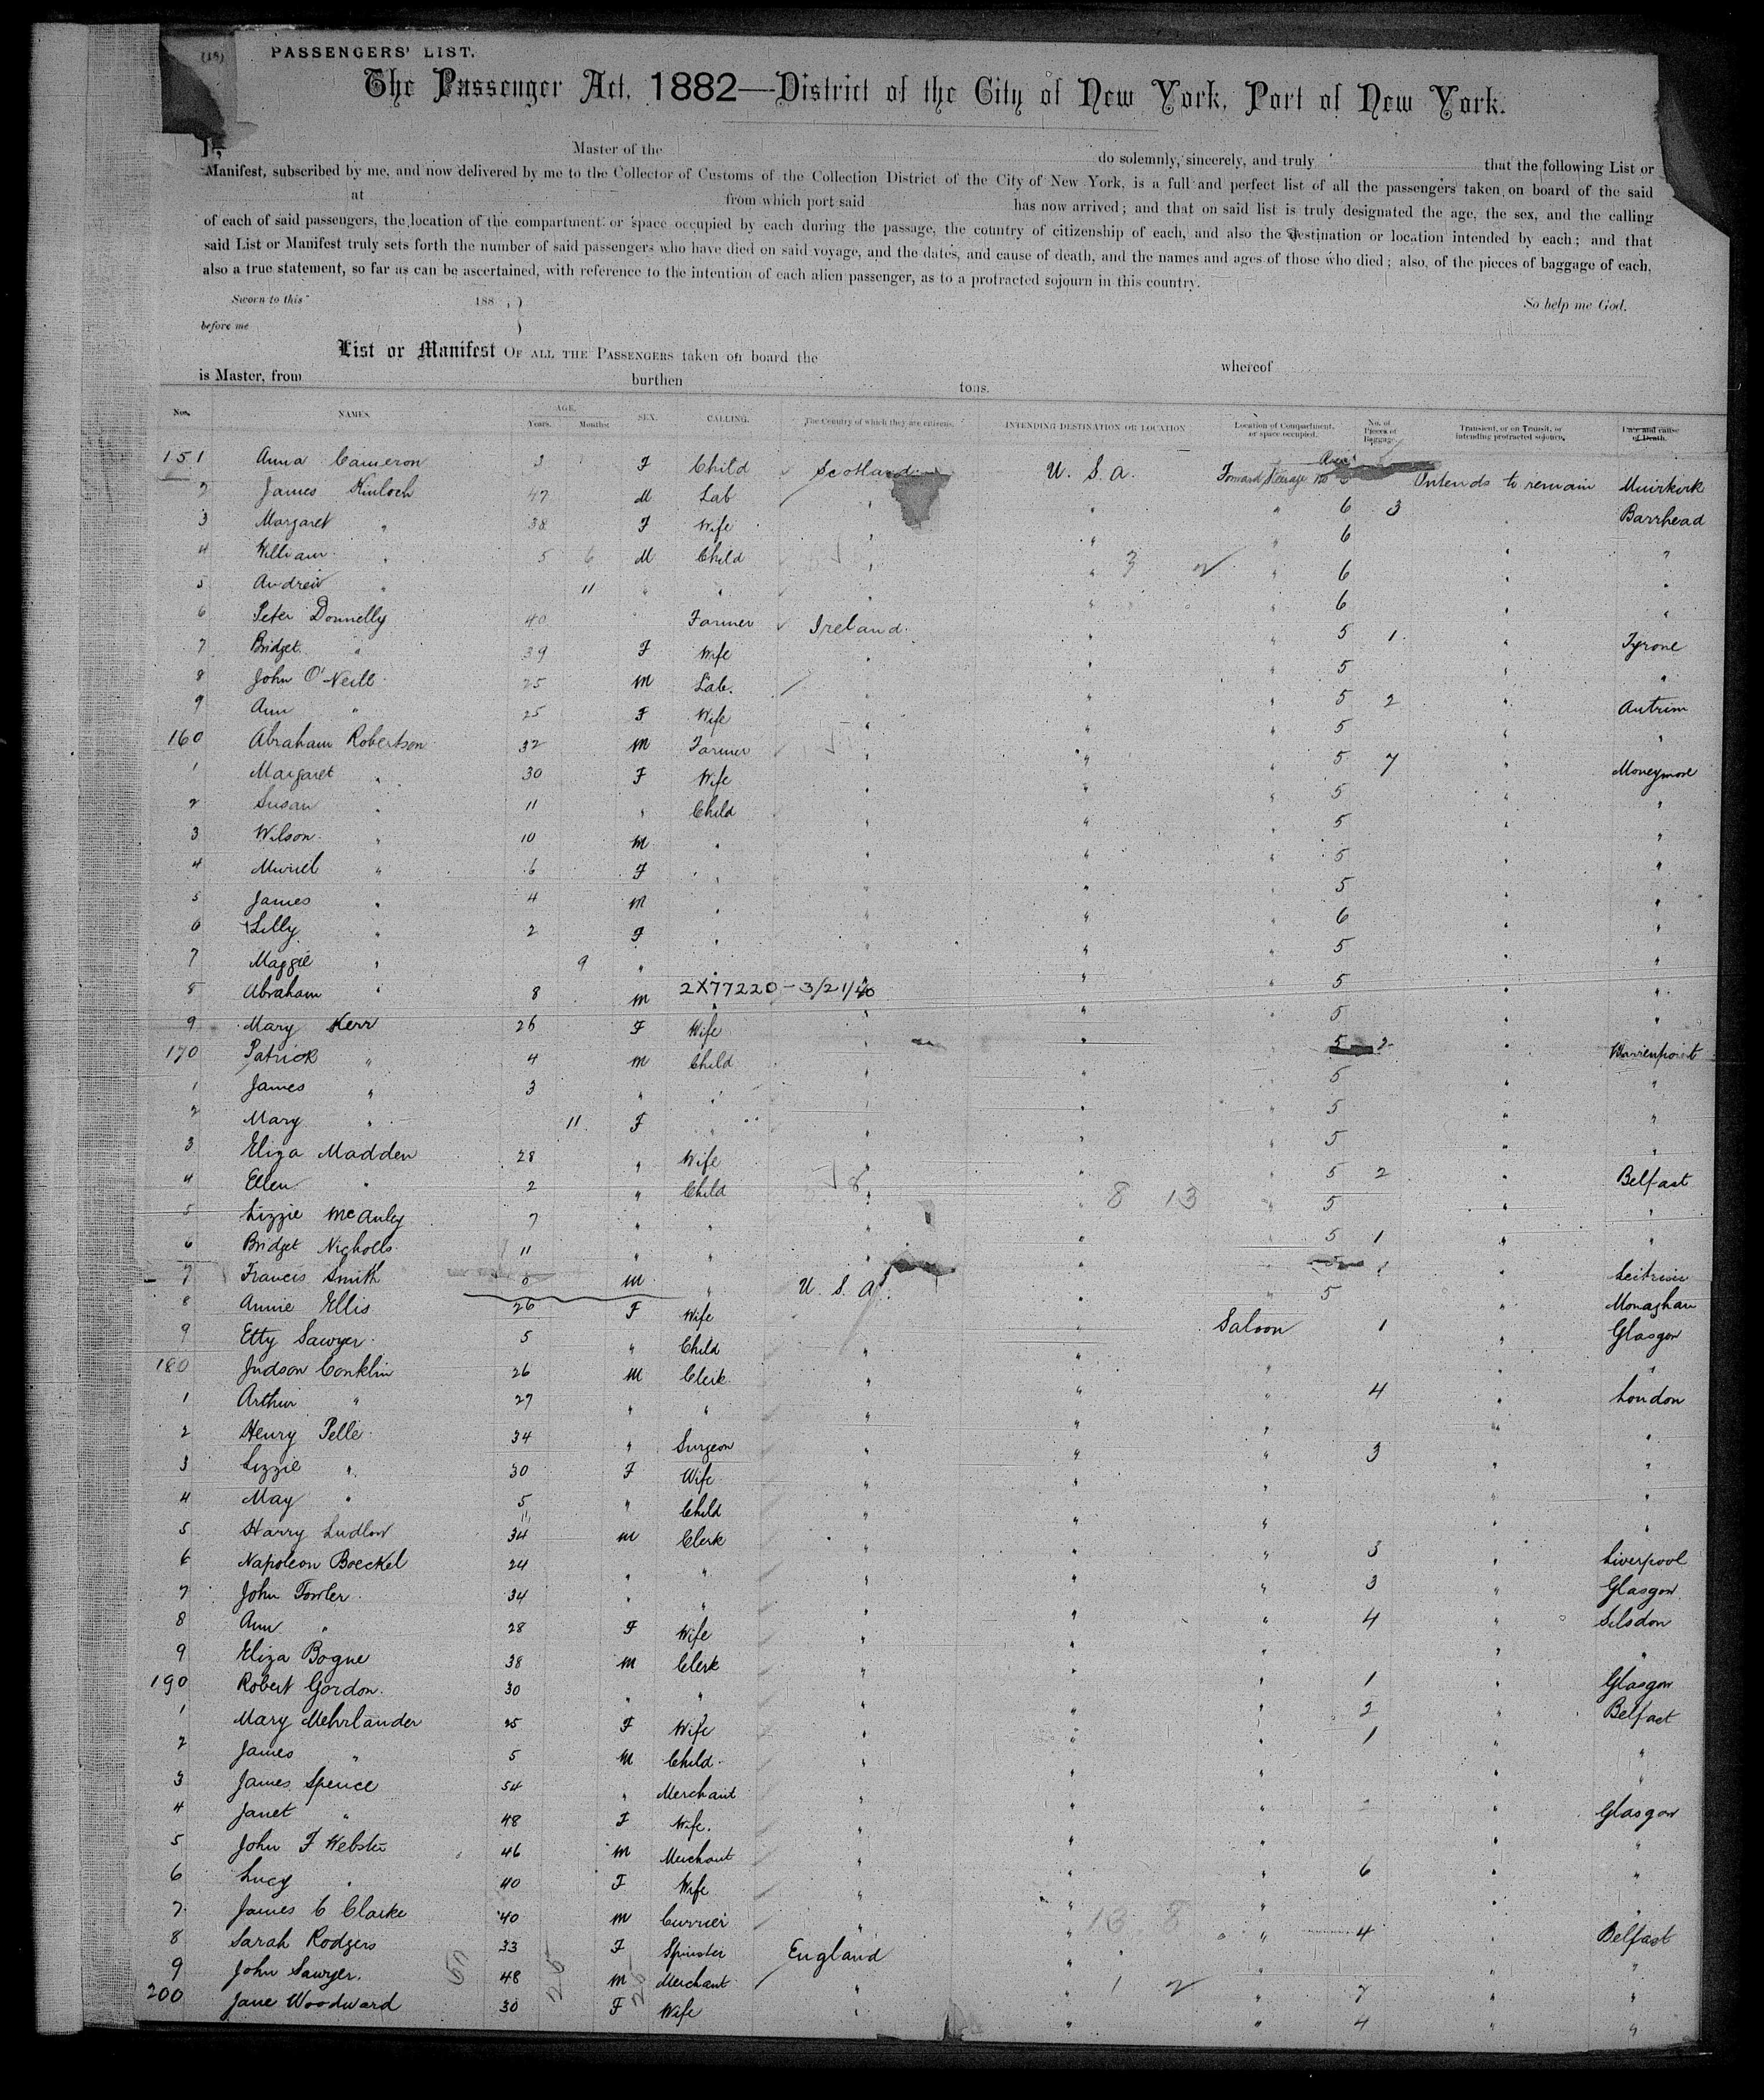 (19)
PASSENGERS' LIST.
The Passenger Act, 1882—District of the City of New York, Port of New York.
I, Master of the do solemnly, sincerely, and truly that the following List or
Manifest, subscribed by me, and now delivered by me to the Collector of Customs of the Collection District of the City of New York, is a full and perfect list of all the passengers taken on board of the said
at from which port said has now arrived; and that on said list is truly designated the age, the sex, and the calling
of each of said passengers, the location of the compartment or space occupied by each during the passage, the country of citizenship of each, and also the destination or location intended by each; and that
said List or Manifest truly sets forth the number of said passengers who have died on said voyage, and the dates, and cause of death, and the names and ages of those who died; also, of the pieces of baggage of each,
also a true statement, so far as can be ascertained, with reference to the intention of each alien passenger, as to a protracted sojourn in this country.
Sworn to this 188 , } So help me God.
before me }
List or Manifest OF ALL THE PASSENGERS taken on board the whereof
is Master, from burthen tons.
Nos. NAMES. AGE. Years. Months. SEX. CALLING. The Country of which they are citizens. INTENDING DESTINATION OR LOCATION Location of Compartment, or space occupied. No. of Pieces of Baggage. Transient, or on Transit, or intending protracted sojourn. Date and cause of Death.
151 Anna Cameron 3 F Child Scotland U. S. A. Forward Steerage No Intends to remain Muirkirk
2 James Kinloch 47 M Lab " " " 6 3 Barrhead
3 Margaret " 38 F Wife " " " 6 " "
4 William " 5 6 M Child " " " 6 " "
5 Andrew " 11 " " " " " 6 " "
6 Peter Donnelly 40 Farmer Ireland " " 5 1 " Tyrone
7 Bridget " 39 F Wife " " " 5 " "
8 John O'Neill 25 M Lab. " " " 5 2 " Antrim
9 Ann " 25 F Wife " " " 5 " "
160 Abraham Robertson 32 M Farmer " " " 5 7 " Moneymore
1 Margaret " 30 F Wife " " " 5 " "
2 Susan " 11 " Child " " " 5 " "
3 Wilson " 10 M " " " " 5 " "
4 Muriel " 6 F " " " " 5 " "
5 James " 4 M " " " " 6 " "
6 Lilly " 2 F " " " " 5 " "
7 Maggie " 9 " " " " " 5 " "
8 Abraham " 8 M 2X77220-3/21/40 " " 5 " "
9 Mary Kerr 26 F Wife " " " 5 2 " Warrenpoint
170 Patrick " 4 M Child " " " 5 " "
1 James " 3 " " " " " 5 " "
2 Mary " 11 F " " " " 5 " "
3 Eliza Madden 28 " Wife " " " 5 2 " Belfast
4 Ellen " 2 " Child " " " 5 " "
5 Lizzie McAuley 7 " " " " " 5 1 " "
6 Bridget Nicholls 11 " " " " " 1 " Leitrim
7 Francis Smith 6 M " U. S. A. " " 5 " Monaghan
8 Annie Ellis 26 F Wife " " Saloon 1 " Glasgow
9 Etty Sawyer 5 " Child " " " " "
180 Judson Conklin 26 M Clerk " " " 4 " London
1 Arthur " 27 " " " " " " "
2 Henry Pelle 34 " Surgeon " " " 3 " "
3 Lizzie " 30 F Wife " " " " "
4 May " 5 " Child " " " " "
5 Harry Ludlow 34 M Clerk " " " 3 " Liverpool
6 Napoleon Boeckel 24 " " " " " 3 " Glasgow
7 John Fowler 34 " " " " " 4 " Silsdon
8 Ann " 28 F Wife " " " " "
9 Eliza Bogue 38 M Clerk " " " 1 " Glasgow
190 Robert Gordon 30 " " " " " 2 " Belfast
1 Mary Mehrlander 25 F Wife " " " 1 " "
2 James " 5 M Child " " " " "
3 James Spence 54 " Merchant " " " 2 " Glasgow
4 Janet " 48 F Wife. " " " " "
5 John F Webster 46 M Merchant " " " 6 " "
6 Lucy " 40 F Wife " " " " "
7 James C Clarke 40 M Currier " " " 4 " Belfast
8 Sarah Rodgers 33 F Spinster England " " " "
9 John Sawyer. 48 M Merchant " " " 7 " "
200 Jane Woodward 30 F Wife " " " 4 " "